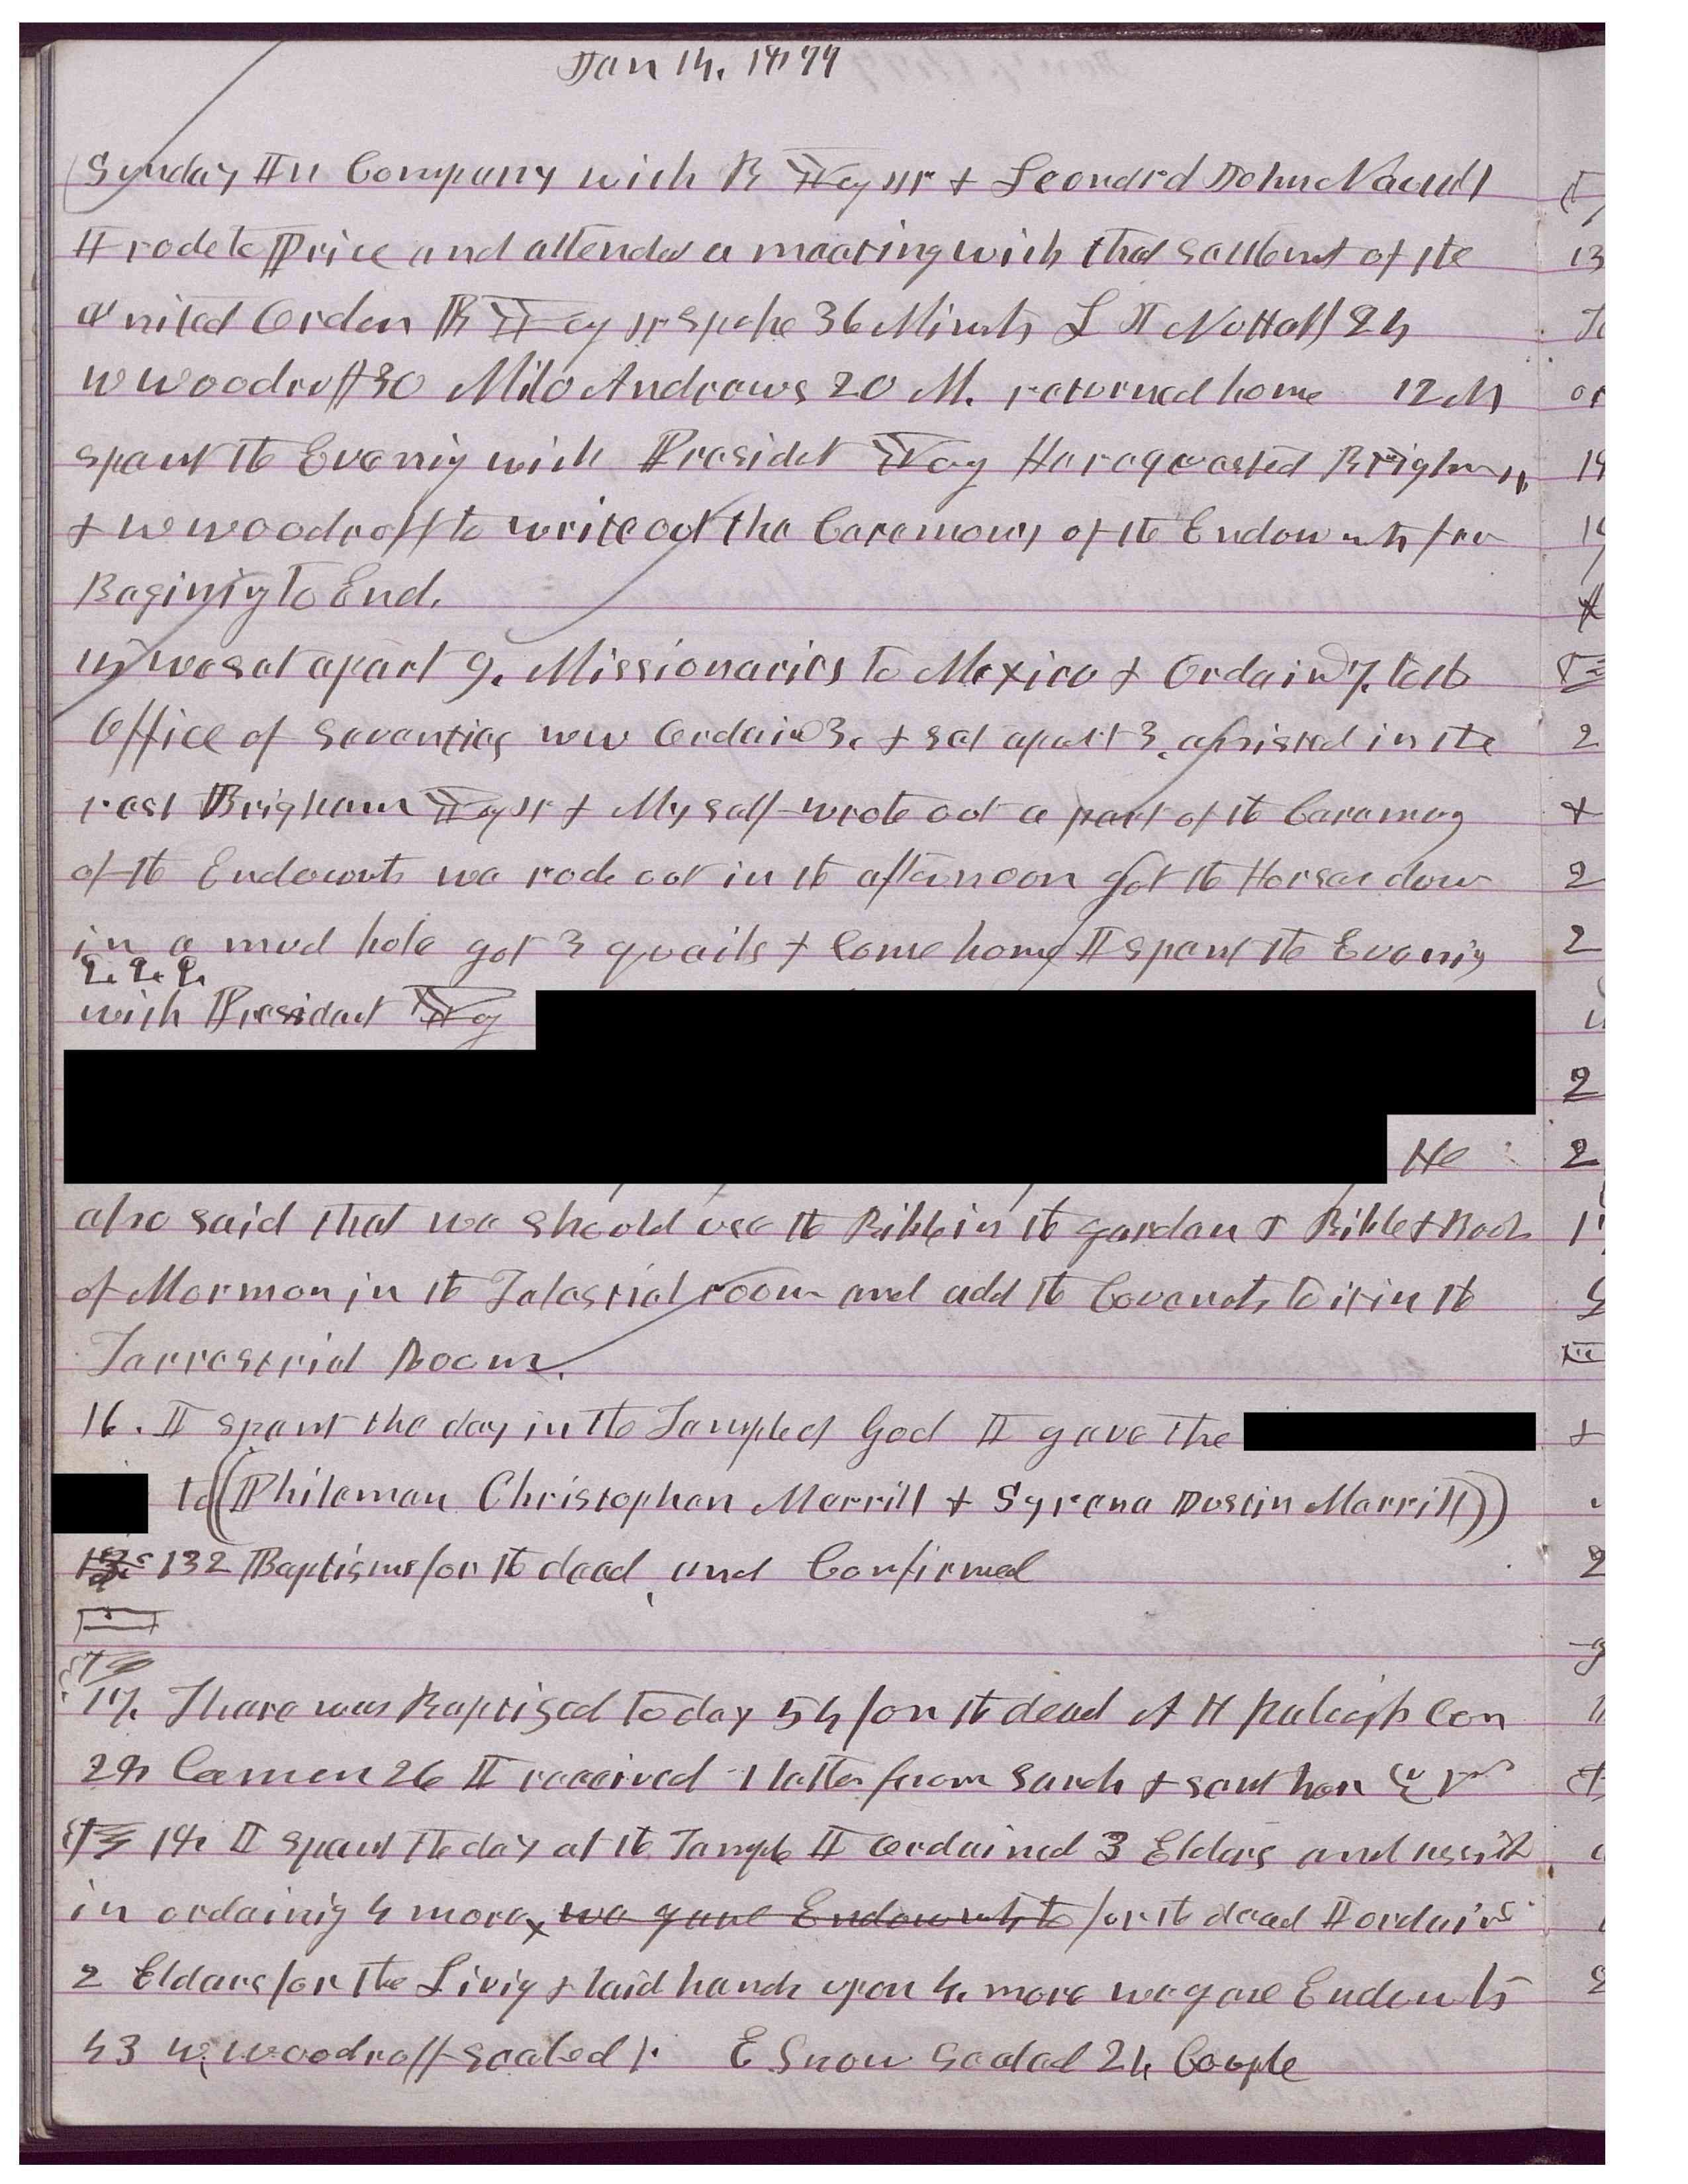 Jan 14, 1877
Sunday In Company with B Young jr & Leonard John Nuttall
I rode to Price and attended a meeting with that settlemt of the
United Order B Young jr spoke 36 Minuts L J Nuttall 24
W Woodruff 30 Milo Andrews 20 M. returned home 12 M
spent the Evenig with Presidet Young He requested Brigham jr
& W Woodruff to write out the Ceremony of the Endowmts from
Beginig to End.
15 we set apart 9. Missionaries to Mexico & Ordaind 7. to the
Office of Seventies WW Ordaind 3. & set apart 3. assisted in the
rest Brigham Young jr & Myself wrote out a part of the Ceremony
of the Endowmts we rode out in the afternoon got the Horses down
in a mud hole got 3 quails & Come home I spent the Evenig
with President Young
He
also said that we should use the Bible in the garden & Bible & Book
of Mormon in the Telestial room and add the Covenants to it in the
Terrestrial Room.
16. I spent the day in the Temple of God I gave the
to ((Philemon Christopher Merrill & Syrena Dustin Merrill))
132 Baptisms for the dead, and Confirmed
17. There was Baptised to day 54 for the dead A H Raleigh Con
28 Cannon 26 I received 1 letter from Sarah & sent her
18. I spent the day at the Temple I ordained 3 Elders and assistd
in ordainig 4 more, we gave Endowmts to for the dead I ordaind
2 Elders for the Livig & laid hands upon 4. more we gave Endowmts
43 W. Woodruff sealed 1. E Snow Sealed 24 Couple